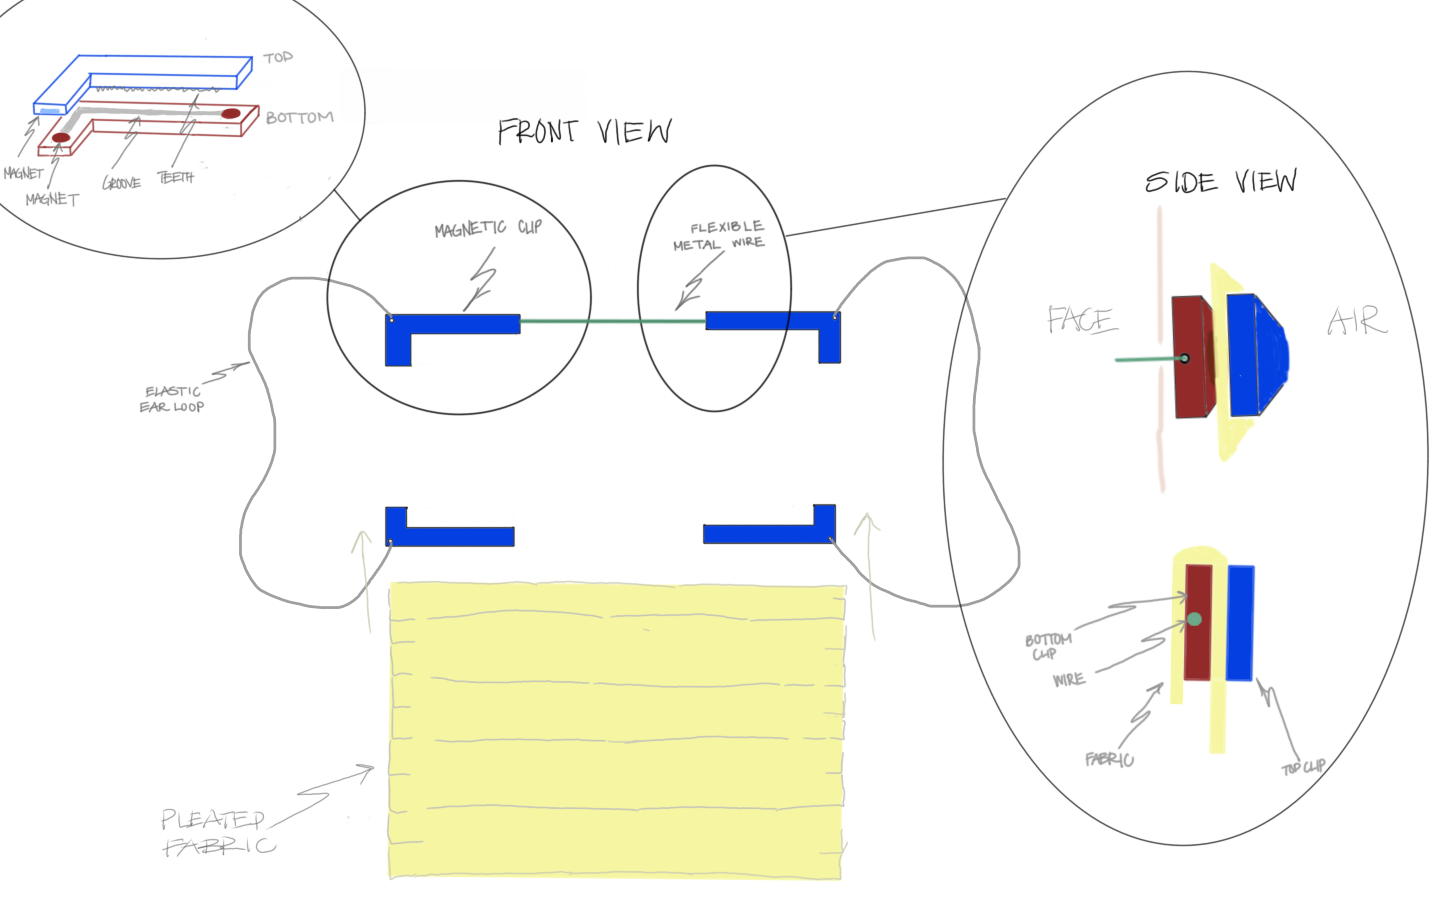 TOP
BOTTOM
MAGNET
MAGNET
GROOVE
TEETH
FRONT VIEW
MAGNETIC CLIP
FLEXIBLE
METAL WIRE
ELASTIC
EAR LOOP
PLEATED
FABRIC
SIDE VIEW
FACE
AIR
BOTTOM
CLIP
WIRE
FABRIC
TOP CLIP